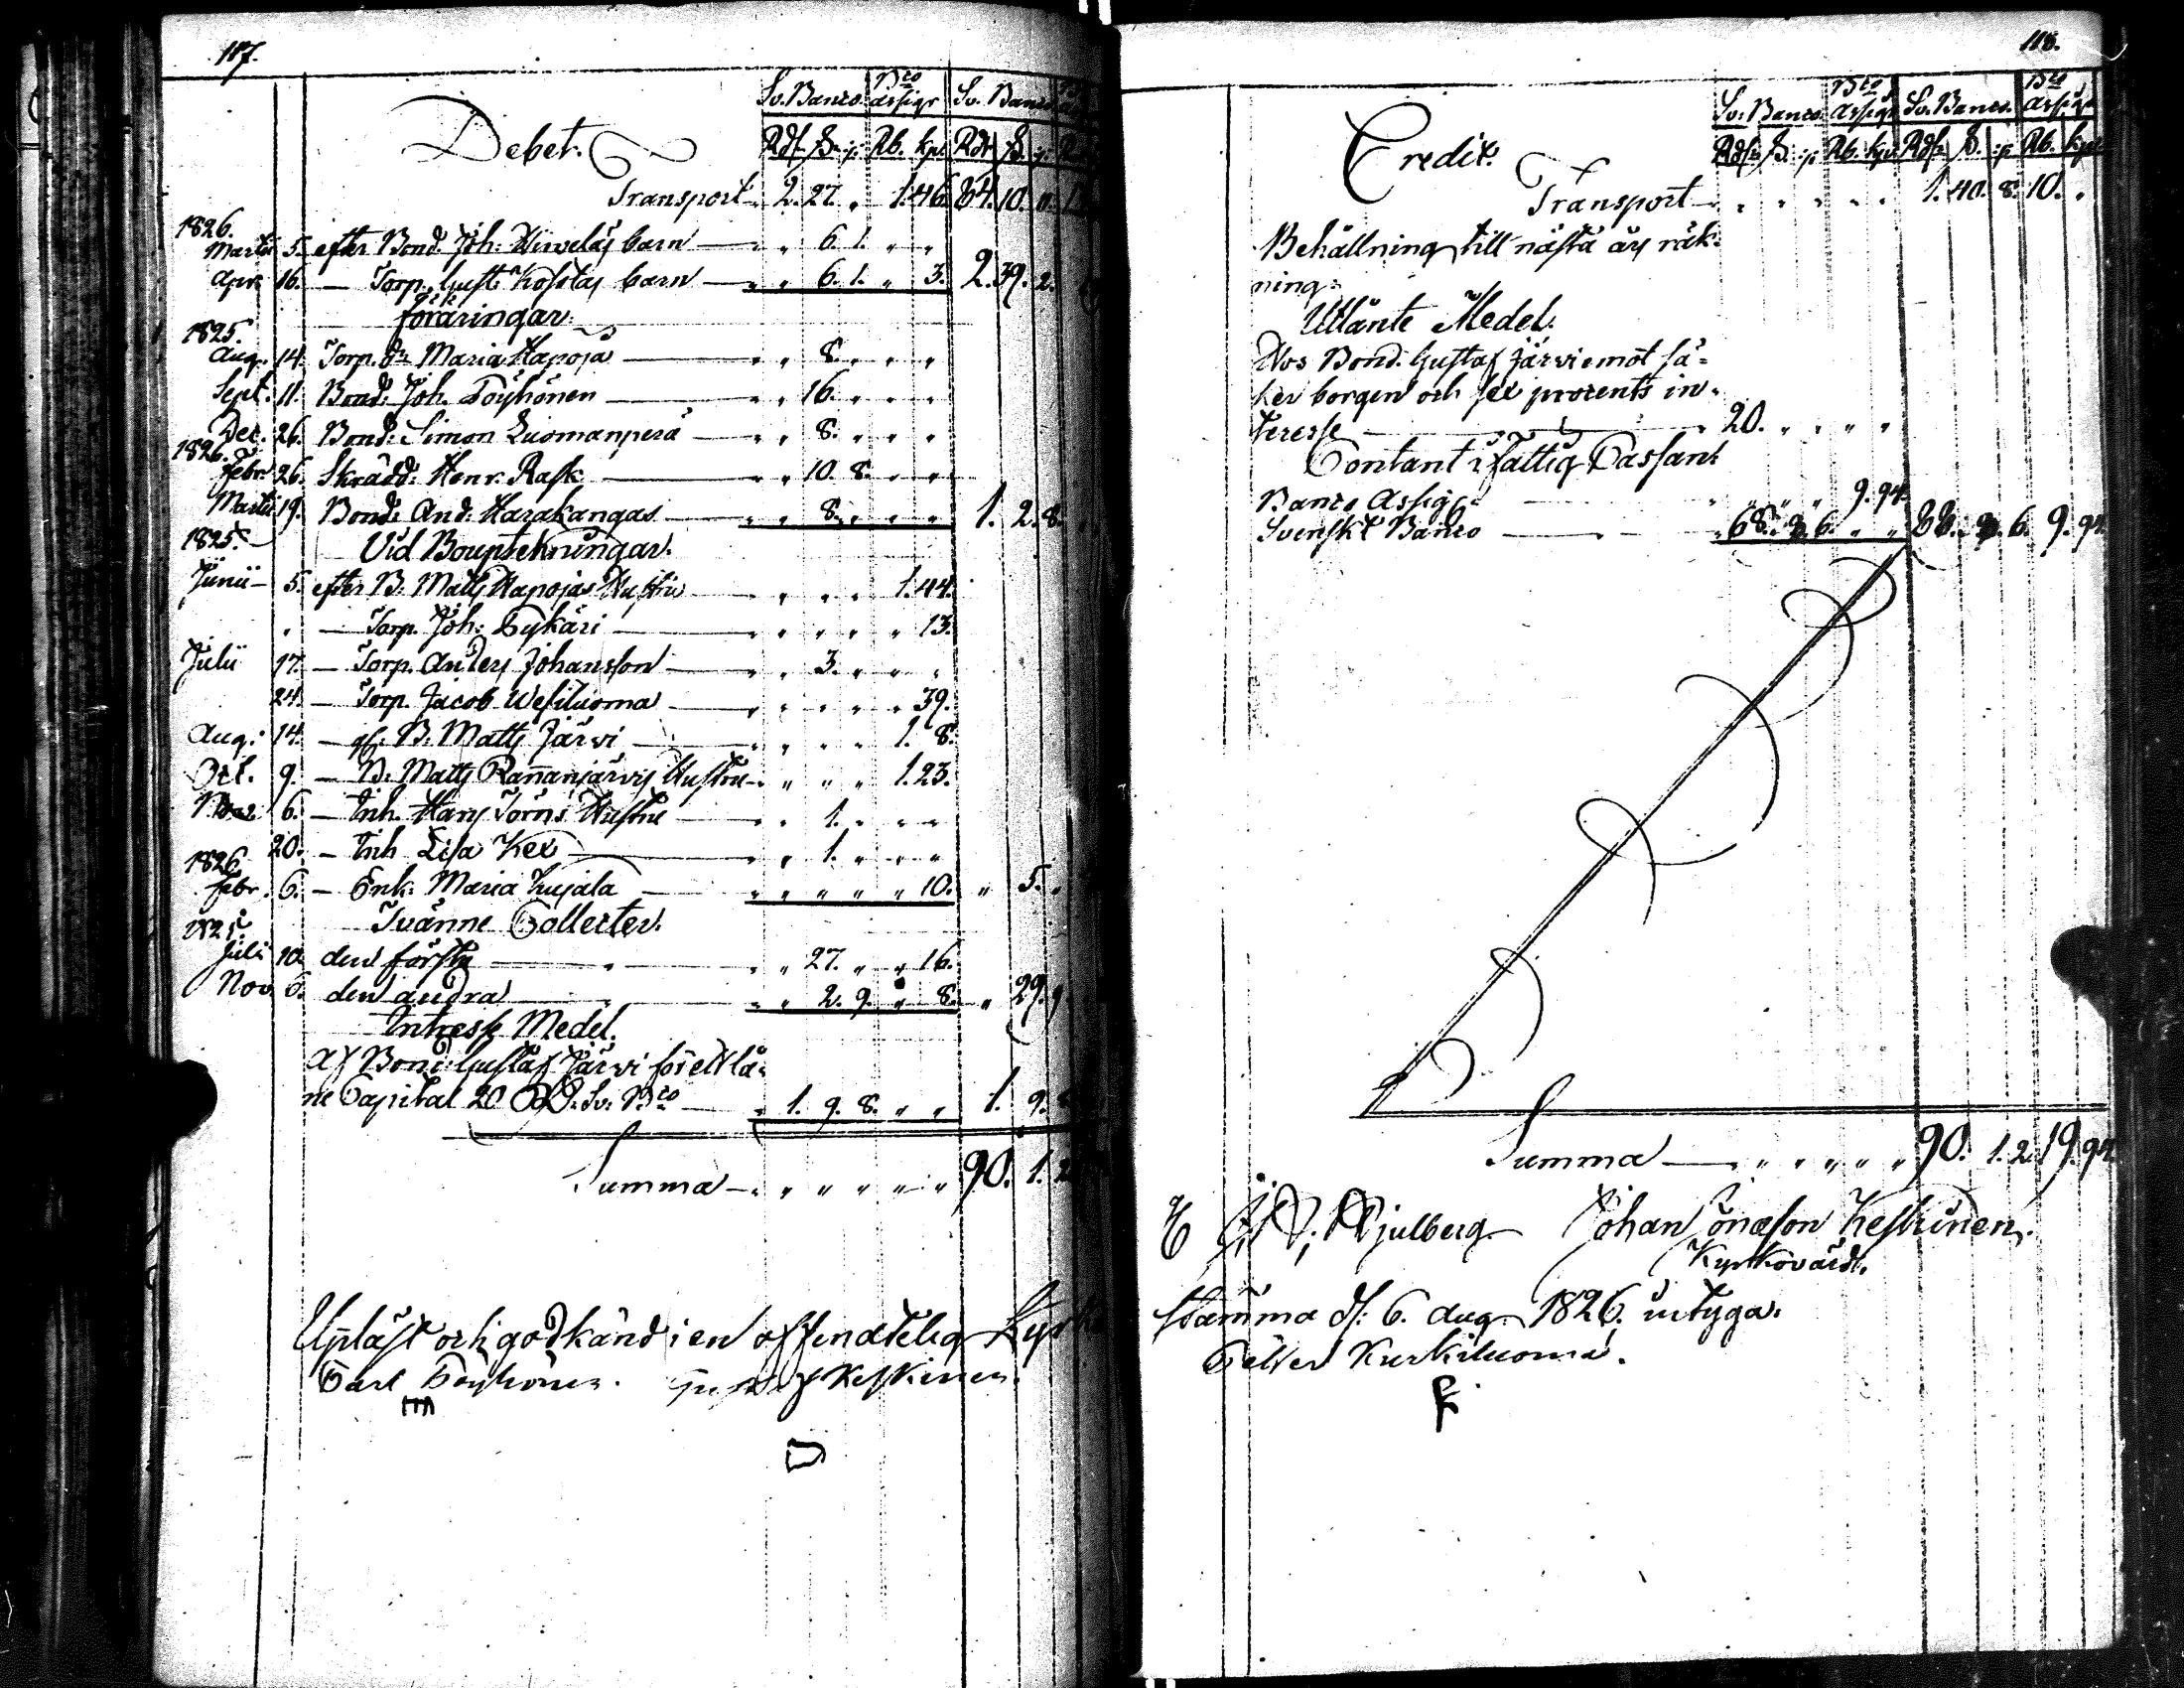 117.
Sv. Banco. Bco assigr Sv. Banco
Debet.
Rdr ß. :p. Rb. kpk. Rdr ß. :p.
Transport 2. 27. " 1.46. 84. 10. 11.
1826.
Martii 5. efter Bond. Joh: Hirvelas barn " " 6. 1. " "
Apr. 16. — Torp. Gust: Kostas barn " " 6. 1. " 3. 2. 39. 2.
föräringar.
1825.
Aug. 14. Torp. dr Maria Hapoja " " 8. " " "
Sept. 11. Bond: Joh. Töyhönen " " 16. " " "
Dec. 26. Bond: Simon Luomanperä " " 8. " " "
1826.
Febr. 26. Skrädd: Henr. Rask " " 10. 8. " "
Martii 19. Bond: And. Harakangas " " 8. " " " 1. 2. 8.
1825. Vid Boupteckningar.
Junii 5. efter B: Matts Hapojas Hustru " " " " 1.44.
" — Torp. Joh: Tykäri " " " " " 13.
Julii 17. — Torp. Anders Johansson " " 3. " " "
24. — Torp. Jacob Wesiluoma " " " " " 39.
Aug. 14. — gf. B: Matts Järvi " " " " 1. 8.
Oct. 9. — B: Matts Rannanjärvis Hustru " " " " 1.23.
Nov. 6. — Inh. Hans Törns Hustru " " 1. " " "
20. — Inh Lisa Kex " " 1. " " "
1826
Febr. 6. — Enk: Maria Lujala " " " " " 10. " 5. "
Tvänne Collecter.
1825
Julii 10. den första " " 27. " " 16.
Nov. 6. den andra " " 2. 9. " 8. " 29. 9.
Intresse Medel.
Af Bond: Gustaf Järvi för ett lå-
ne Capital 20 Rd. Sv: Bco " 1. 9. 8. " " 1. 9. 8
Summa " " " " " " 90. 1. 2
Upläst och godkänd i en offendtelig Kyrko
Carl Töyhönen. Keskinen.
118.
Sv: Banco. Bco Assigr Sv: Banco. Bco Assigr
Credit.
Rdr ß. :p Rb. kpk Rdr ß. :p Rb. kpk
Transport " " " " " 1. 40. 8. 10. "
Behållning till nästa års räk-
ning.
Utlånte Medel.
Hos Bond. Gustaf Järvi emot sä-
ker borgen och sex procents in-
teresse 20. " " " "
Contant i Fattig Cassan.
Banco Assigr " " " 9. 94.
Svenskt Banco 68. 8. 6. " " 88. 8. 6. 9. 94.
Summa " " " " " " 90. 1. 2. 19. 94.
Hjulberg Johan Jonæson Keskinen.
Kyrkovärd.
stämma d: 6. Aug. 1826. intyga.
Kurkiluoma.